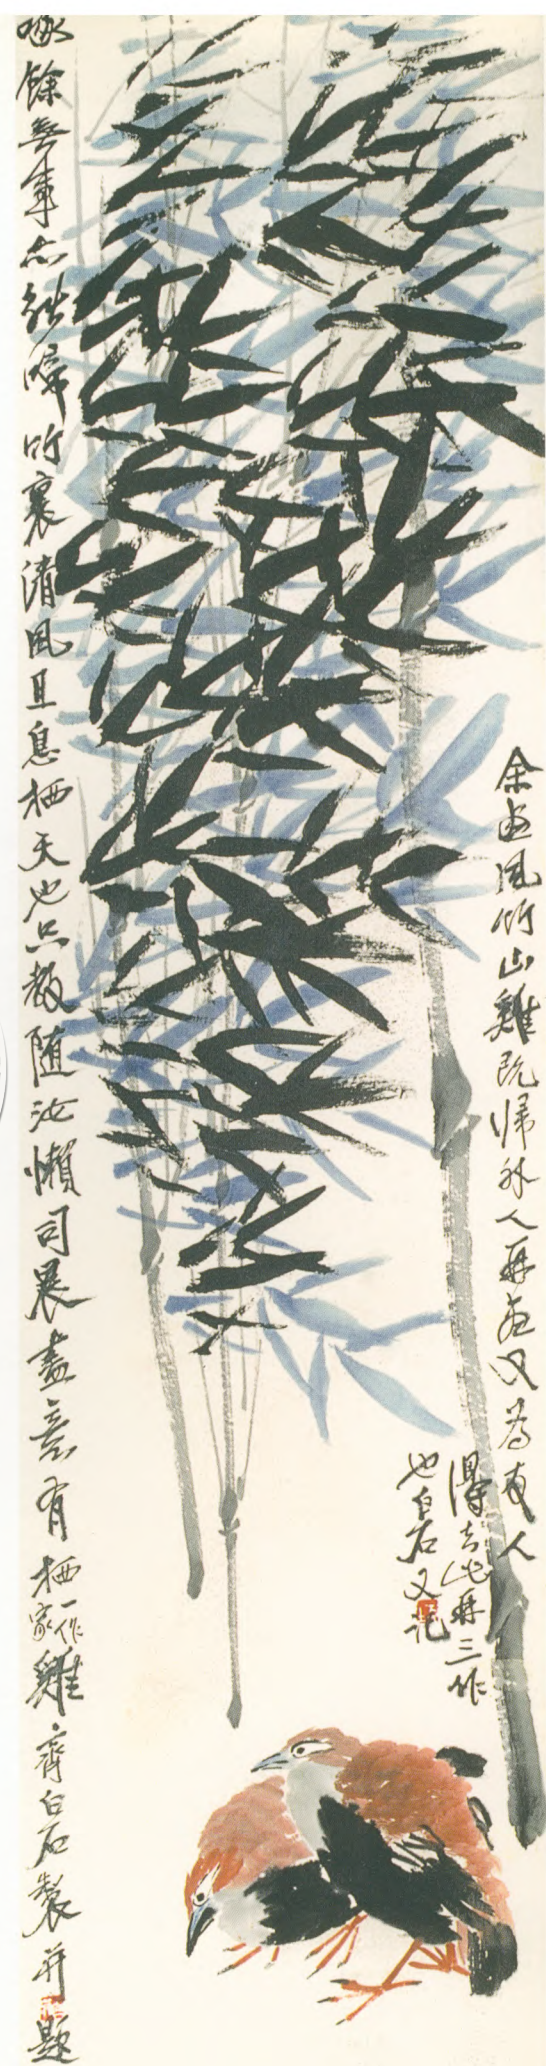 余畫風竹山雞既歸外人再畫又為友人
得去此再三作
也白石又記
啄餘無事亦能啼竹裏清風且息栖天也只教随汝懶司晨盡意有栖一作家雞齊白石製并題